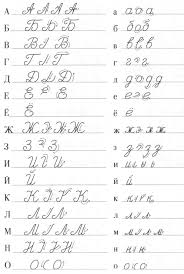 А А А А А а а о а
Б Б Б Б Б б б о б
В В В В В в в в в
Г Г Г Г Г г г г г
Д Д Д Д Д д д о д д
Е Е Е Е Е е е е е
Ё Ё ё ё
Ж Ж Ж Ж Ж ж ж ж ж ж
З З З З З з з з з
И И И И И и и и и
Й Й й й
К К К К К к к к к к
Л Л Л Л л л л л
М М М М М м м м м
Н Н Н Н Н н н н н
О О О О о о о о